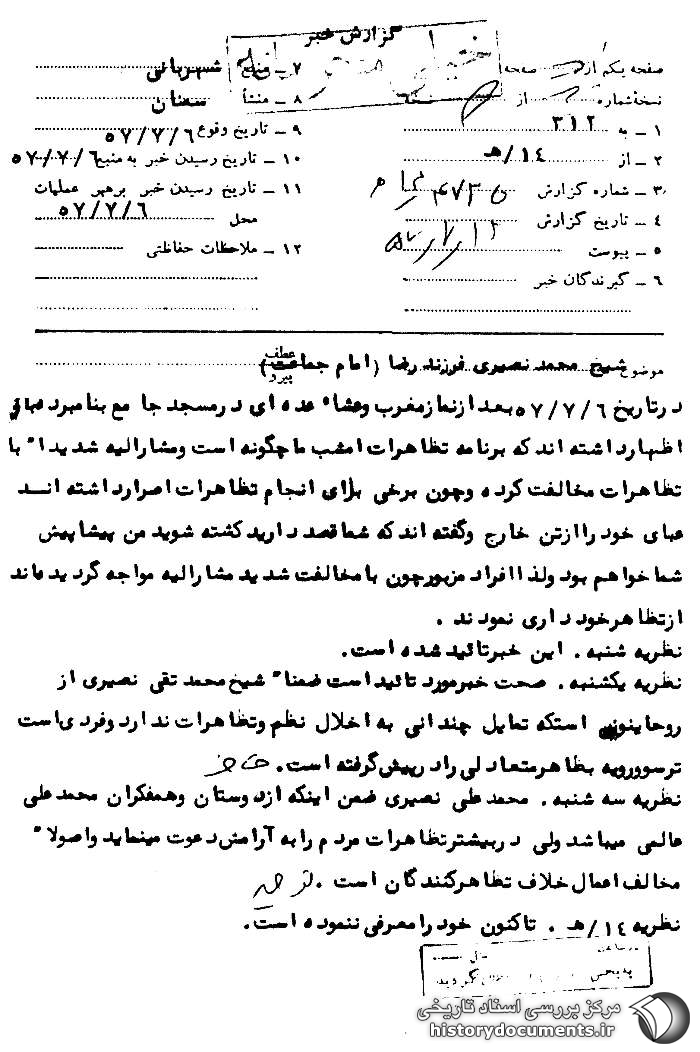 گزارش خبر
خیلی محرمانه
صفحه یکم از صفحه
نسخه شماره از نسخه
۱ - به ۳۱۲
۲ - از ۱۴/هـ
۳ - شماره گزارش ۴۷۳۵
۴ - تاریخ گزارش
۵ - پیوست
۶ - گیرندگان خبر
۷ - منبع شهربانی
۸ - منشأ سمنان
۹ - تاریخ وقوع ۵۷/۷/۶
۱۰ - تاریخ رسیدن خبر به منبع ۵۷/۷/۶
۱۱ - تاریخ رسیدن خبر برهبر عملیات
محل ۵۷/۷/۶
۱۲ - ملاحظات حفاظتی
موضوع شیخ محمد نصیری فرزند رضا (امام جماعت) عطف پیرو
در تاریخ ۵۷/۷/۶ بعد از نماز مغرب وعشاء عده ای در مسجد جا مع بنامبرد
اظهارداشته اند که برنامه تظاهرات امشب ما چگونه است ومشارالیه شدیدا" با
تظاهرات مخالفت کرده وچون برخی برای انجام تظاهرات اصرار داشته انـد
عبای خود را از تن خارج وگفته اند که شما قصد دارید کشته شوید من پیشاپیش
شما خواهم بود ولذا افراد مزبور چون با مخالفت شدید مشارالیه مواجه گردیده اند
از تظاهر خود داری نمودند .
نظریه شنبه . این خبر تائید شده است.
نظریه یکشنبه . صحت خبر مورد تائید است ضمنا" شیخ محمد تقی نصیری از
روحانیونی استکه تمایل چندانی به اخلال نظم وتظاهرات ندارد وفردی است
ترسو ورویه بظاهر متعادلی را در پیش گرفته است.
نظریه سه شنبه . محمد علی نصیری ضمن اینکه از دوستان وهمفکران محمد علی
عالمی میباشد ولی در بیشتر تظاهرات مردم را به آرامش دعوت مینماید واصولا"
مخالف اعمال خلاف تظاهر کنندگان است .
نظریه ۱۴/هـ . تاکنون خود را معرفی ننموده است.
مرکز بررسی اسناد تاریخی
historydocuments.ir